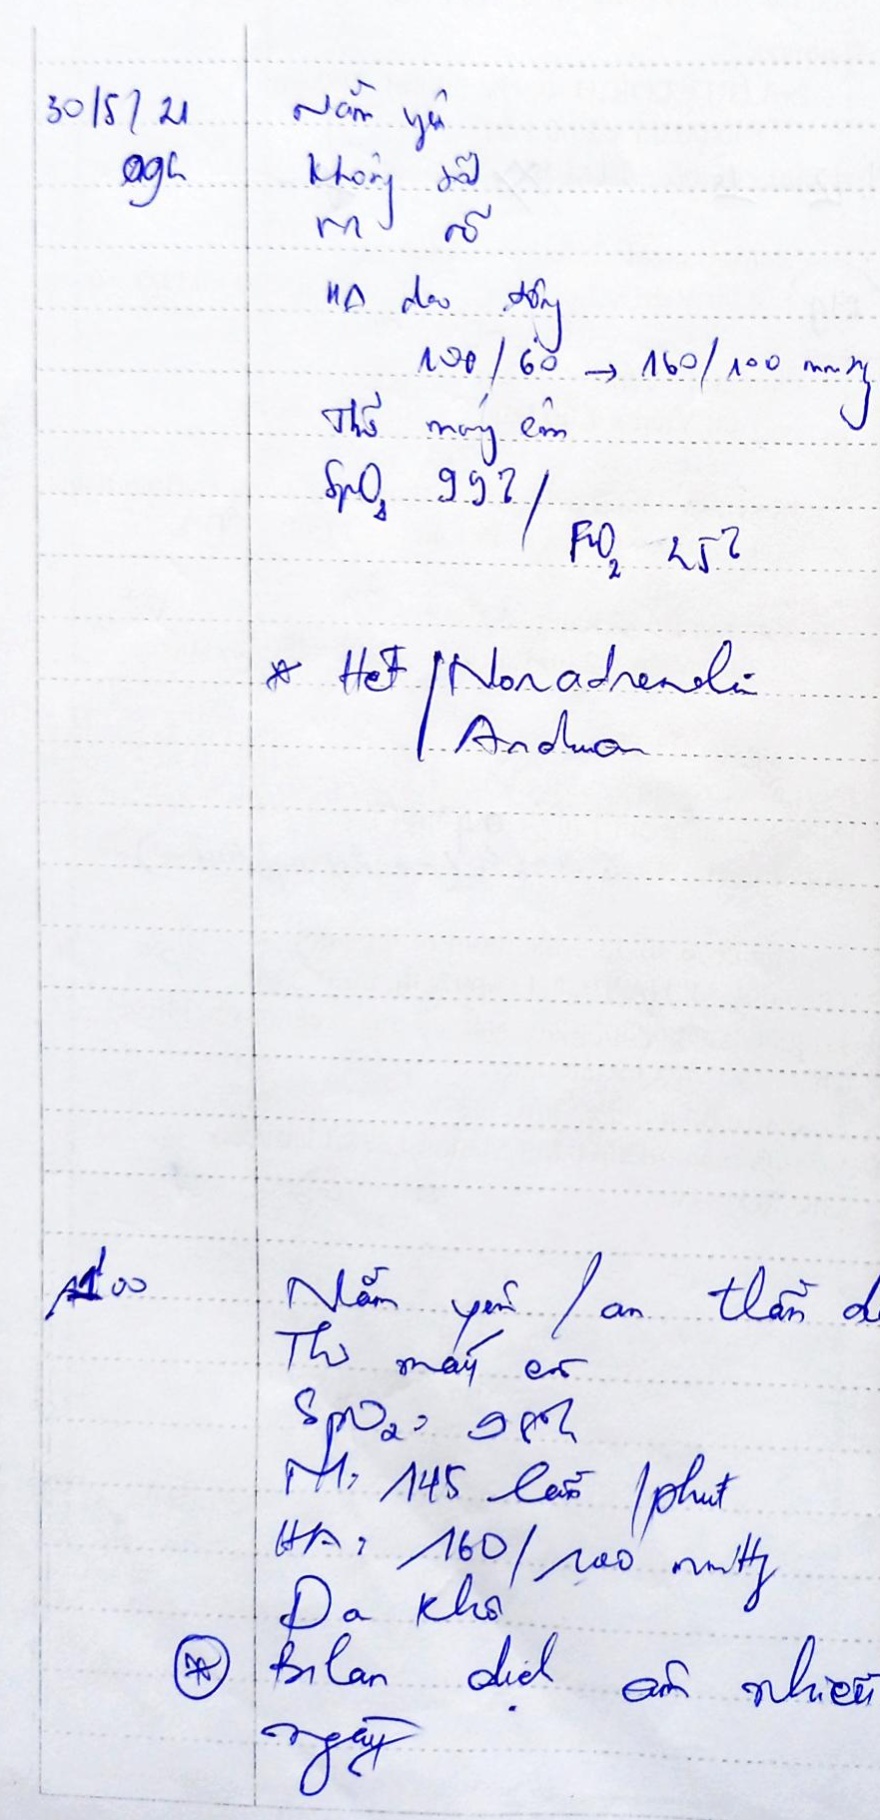 30/5/21 Nằm yên
09h Không sốt
M rõ
HA dao động
100/60 → 160/100 mmHg
Thở máy êm
SpO2 99%/
FiO2 25%
* Hết /Noradrenalin
Arduan
00 Nằm yên / an thần
Thở máy êm
SpO2: 98%
M: 145 lần /phút
HA: 160/100 mmHg
Da khô
* Bilan dịch âm nhiều
ngày